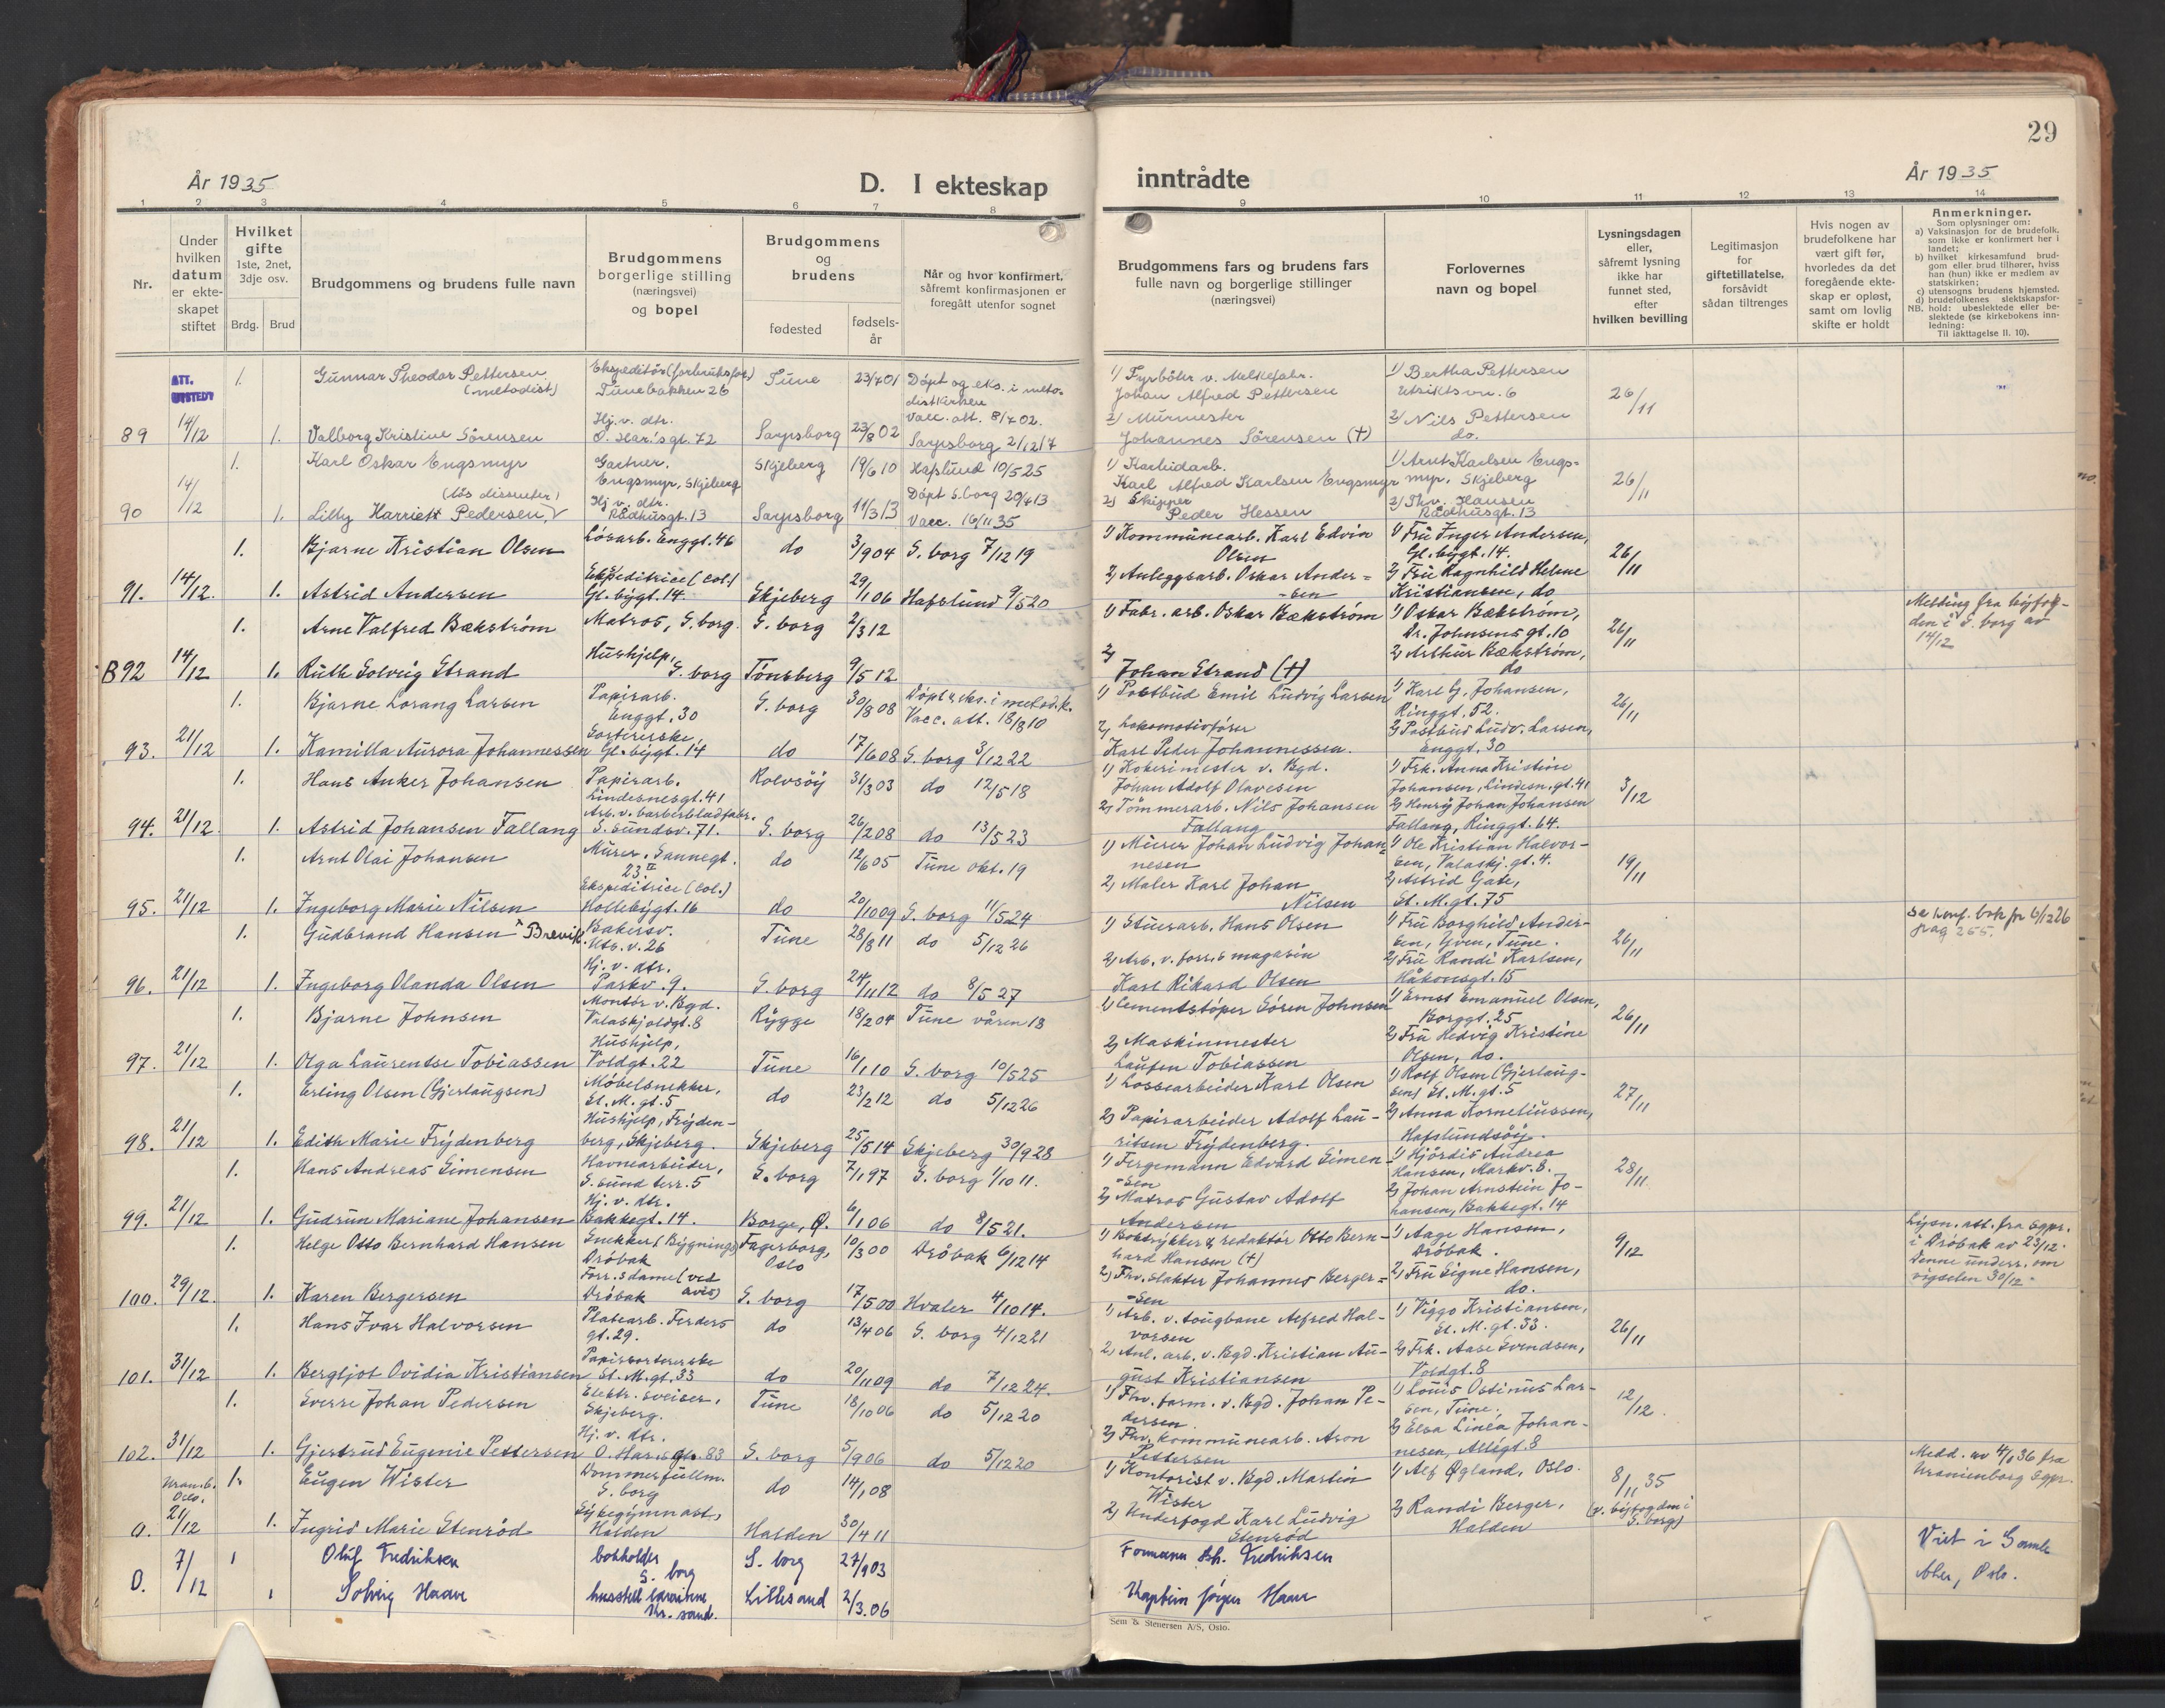 29
År 1935
D. I ekteskap
inntrådte
År 1935
1 2 3 4 5 6 7 8 9 10 11 12 13 14
Nr.
Under
hvilken
datum
er ekte-
skapet
stiftet
Hvilket
gifte
1ste, 2net,
3dje osv.
Brdg. Brud
Brudgommens og brudens fulle navn
Brudgommens
borgerlige stilling
(næringsvei)
og bopel
Brudgommens
og
brudens
fødested
fødsels-
år
Når og hvor konfirmert,
såfremt konfirmasjonen er
foregått utenfor sognet
Brudgommens fars og brudens fars
fulle navn og borgerlige stillinger
(næringsvei)
Forlovernes
navn og bopel
Lysningsdagen
eller,
såfremt lysning
ikke har
funnet sted,
efter
hvilken bevilling
Legitimasjon
for
giftetillatelse,
forsåvidt
sådan tiltrenges
Hvis nogen av
brudefolkene har
vært gift før,
hvorledes da det
foregående ekte-
skap er opløst,
samt om lovlig
skifte er holdt
Anmerkninger.
Som oplysninger om:
a) Vaksinasjon for de brudefolk,
som ikke er konfirmert her i
landet;
b) hvilket kirkesamfund brud-
gom eller brud tilhører, hviss
han (hun) ikke er medlem av
statskirken;
c) utensogns brudens hjemsted.
d) brudefolkenes slektskapsfor-
NB. hold: ubeslektede eller be-
slektede (se kirkebokens inn-
ledning:
Til iakttagelse II. 10).
ATT.
UTSTEDT
1. Gunnar Theodor Pettersen
(metodist)
Ekspeditør (forbruksfor.)
Tunebakken 26
Tune 23/7 01
Døpt og eks. i meto-
distkirken
Vacc. att. 8/7 02.
1) Fyrbøter v. Melkefabr.
Johan Alfred Pettersen
1) Bertha Pettersen
Utsiktsvn. 6
26/11
89 14/12 1. Valborg Kristine Sørensen
Hj. v. dtr.
O. Har.'s gt. 72
Sarpsborg 23/8 02 Sarpsborg 2/12 17
2) Murmester
Johannes Sørensen (†)
2) Nils Pettersen
do.
1. Karl Oskar Engsmyr
Gartner.
Engsmyr, Skjeberg
Skjeberg 19/6 10 Hafslund 10/5 25
1) Karbidarb.
Karl Alfred Karlsen Engsmyr
1) Arnt Karlsen Engs-
myr, Skjeberg
26/11
90 14/12 1. Lilly Harriett Pedersen,
(løs dissenter)
Hj. v. dtr.
Rådhusgt. 13
Sarpsborg 11/3 13
Døpt S.borg 20/4 13
Vacc. 16/11 35
2) Skipper
Peder Hessen
2) Thv. Hansen
Rådhusgt. 13
1. Bjarne Kristian Olsen
Løsarb. Enggt. 46
do 3/9 04 S. borg 7/12 19
1) Kommunearb. Karl Edvin
Olsen
1) Fru Inger Andersen,
Gl. bygt. 14.
26/11
91. 14/12. 1. Astrid Andersen
Ekspeditrice (col.)
Gl. bygt. 14.
Skjeberg 29/1 06 Hafslund 9/5 20
2) Anleggsarb. Oskar Ander=
-sen
2) Fru Ragnhild Helene
Kristiansen, do
1. Arne Valfred Bækstrøm
Matros, S. borg. S. borg 2/3 12
1) Fabr. arb. Oskar Bækstrøm
1) Oskar Bækstrøm,
Dr. Johnsens gt. 10
26/11
Melding fra byfog-
den i S. borg av
14/12
B 92 14/12 1. Ruth Solveig Strand
Hushjelp,
S. borg
Tønsberg 9/5 12
2)
Johan Strand (†)
2) Arthur Bækstrøm,
do
1. Bjarne Lorang Larsen
Papirarb.
Enggt. 30
S. borg 30/8 08
Døpt & eks. i metod. k.
Vacc. att. 18/8 10
1) Postbud Emil Ludvig Larsen
1) Karl G. Johansen,
Ringgt. 52.
26/11
93. 21/12 1. Kamilla Aurora Johannessen
Sortirerske,
Gl. bygt. 14
do 17/6 08 S. borg 3/12 22
2) Lokomotivfører
Karl Peder Johannessen.
2) Postbud Ludv. Larsen,
Enggt. 30
1. Hans Anker Johansen
Papirarb.
Lindesnesgt. 41
Rolvsøy 31/3 03 do 12/5 18
1) Kokerimester v. Bgd.
Johan Adolf Olavesen
1) Frk. Anna Kristine
Johansen, Lindesn. gt. 41
3/12
94. 21/12. 1. Astrid Johansen Fallang
Arb. v. barberbladfabr.
S. sundsv. 71.
S. borg 26/2 08 do 13/5 23
2) Tømmerarb. Nils Johansen
Fallang
2) Henry Johan Johansen
Fallang, Ringgt. 64.
1. Arnt Olai Johansen
Murer, Sannegt.
23 II
do 12/6 05 Tune okt. 19
1) Murer Johan Ludvig Johan=
nesen
1) Ole Kristian Halvor-
sen, Valaskj. gt. 4.
19/11
95. 21/12 1. Ingeborg Marie Nilsen
Ekspeditrice (col.)
Hollebygt. 16
do 20/10 09 S. borg 11/5 24
2) Maler Karl Johan
Nilsen
2) Astrid Gate,
St. M. gt. 75
1. Gudbrand Hansen ^ Brevik
Bakersv.
Uts. v. 26
Tune 28/8 11 do 5/12 26
1) Stuerarb. Hans Olsen
1) Fru Borghild Ander-
sen, Yven, Tune.
26/11
se konf. bok for 5/12 26
pag 255.
96. 21/12 1. Ingeborg Olanda Olsen
Hj. v. dtr.
Parkv. 9.
S. borg 24/11 12 do 8/5 27
2) Arb. v. forr.s magasin
Karl Rikard Olsen
2) Fru Randi Karlsen,
Håkonsgt. 15
1. Bjarne Johnsen
Montør v. Bgd.
Valaskjoldgt. 8
Rygge 18/2 04 Tune våren 18
1) Cementstøper Søren Johnsen
1) Ernst Emanuel Olsen,
Borggt. 25
26/11
97. 21/12 1. Olga Laurentse Tobiassen
Hushjelp,
Voldgt. 22
Tune 16/1 10 S. borg 10/5 25
2) Maskinmester
Lauten Tobiassen
2) Fru Hedvig Kristine
Olsen, do.
1. Erling Olsen (Gjerlaugsen)
Møbelsnekker,
St. M. gt. 5
do 23/2 12 do 5/12 26
1) Lossearbeider Karl Olsen
1) Rolf Olsen (Gjerlaug-
sen) St. M. gt. 5
27/11
98. 21/12 1. Edith Marie Frydenberg
Hushjelp, Fryden-
berg, Skjeberg.
Skjeberg 25/5 14 Skjeberg 30/9 28
2) Papirarbeider Adolf Lau-
ritsen Frydenberg.
2) Anna Korneliussen,
Hafslundsøy.
1. Hans Andreas Simensen
Havnearbeider,
S. sund terr. 5
S. borg 7/1 97 S. borg 1/10 11.
1) Fergemann Edvard Simen-
-sen
1) Hjørdis Andrea
Hansen, Markv. 8.
28/11
99. 21/12 1. Gudrun Mariane Johansen
Hj. v. dtr.
Bakkegt. 14.
Borge, Ø. 6/1 06 do 8/5 21.
2) Matros Gustav Adolf
Andersen
2) Johan Arnstein Jo-
hansen, Bakkegt. 14
1. Helge Otto Bernhard Hansen
Snekker (Bygnings)
Drøbak
Fagerborg,
Oslo
10/3 00 Drøbak 6/12 14
1) Boktrykker & redaktør Otto Bern-
hard Hansen (†)
1) Aage Hansen,
Drøbak.
9/12
Lysn. att. fra sgpr.
i Drøbak av 23/12.
Denne underr. om
vigselen 30/12.
100. 29/12. 1. Karen Bergersen
Forr.s dame (ved
avis)
Drøbak
S. borg 17/5 00 Hvaler 4/10 14.
2) Fhv. slakter Johannes Berger=
-sen
2) Fru Signe Hansen,
do.
1. Hans Ivar Halvorsen
Platearb. Ferders
gt. 29.
do 13/4 06 S. borg 4/12 21
1) Arb. v. tougbane Alfred Hal-
vorsen
1) Viggo Kristiansen,
St. M. gt. 33.
26/11
101. 31/12 1. Bergljot Ovidia Kristiansen
Papirsortererske
St. M. gt. 33
do 20/11 09 do 7/12 24.
2) Anl. arb. v. Bgd. Kristian Au-
gust Kristiansen
2) Frk. Aase Svendsen,
Voldgt. 8
1. Sverre Johan Pedersen
Elektr. sveiser,
Skjeberg.
Tune 18/10 06 do 5/12 20
1) Fhv. form. v. Bgd. Johan Pe-
dersen.
1) Louis Ostinus Lar-
sen, Tune.
12/12.
102. 31/12 1. Gjertrud Eugenie Pettersen
Hj. v. dtr.
O. Har.s gt. 83
S. borg 5/9 06 do 5/12 20
2) Fhv. kommunearb. Aron
Pettersen
2) Elsa Linéa Johan-
nesen, Allégt. 8
Uranb.
Oslo.
1. Eugen Wister
Dommerfullm.
S. borg
do 14/1 08
1) Kontorist v. Bgd. Martin
Wister
1) Alf Øgland, Oslo.
8/11 35
(v. byfogden i
S. borg)
Medd. av 4/1 36 fra
Uranienborg sgpr.
a. 21/12 1. Ingrid Marie Stenrød
Sykegymnast,
Halden
Halden 30/4 11
2) Underfogd Karl Ludvig
Stenrød
2) Randi Berger,
Halden
O. 7/12 1 Oluf Fredriksen
bokholder
S. borg
S. borg 27/9 03
Formann Fredriksen
Viet i Gamle
Aker, Oslo.
1 Solveig Haave
husstell lærerinne
Kr. sand.
Lillesand 2/3. 06
Kaptein Jørgen Haave
Sem & Stenersen A/S, Oslo.